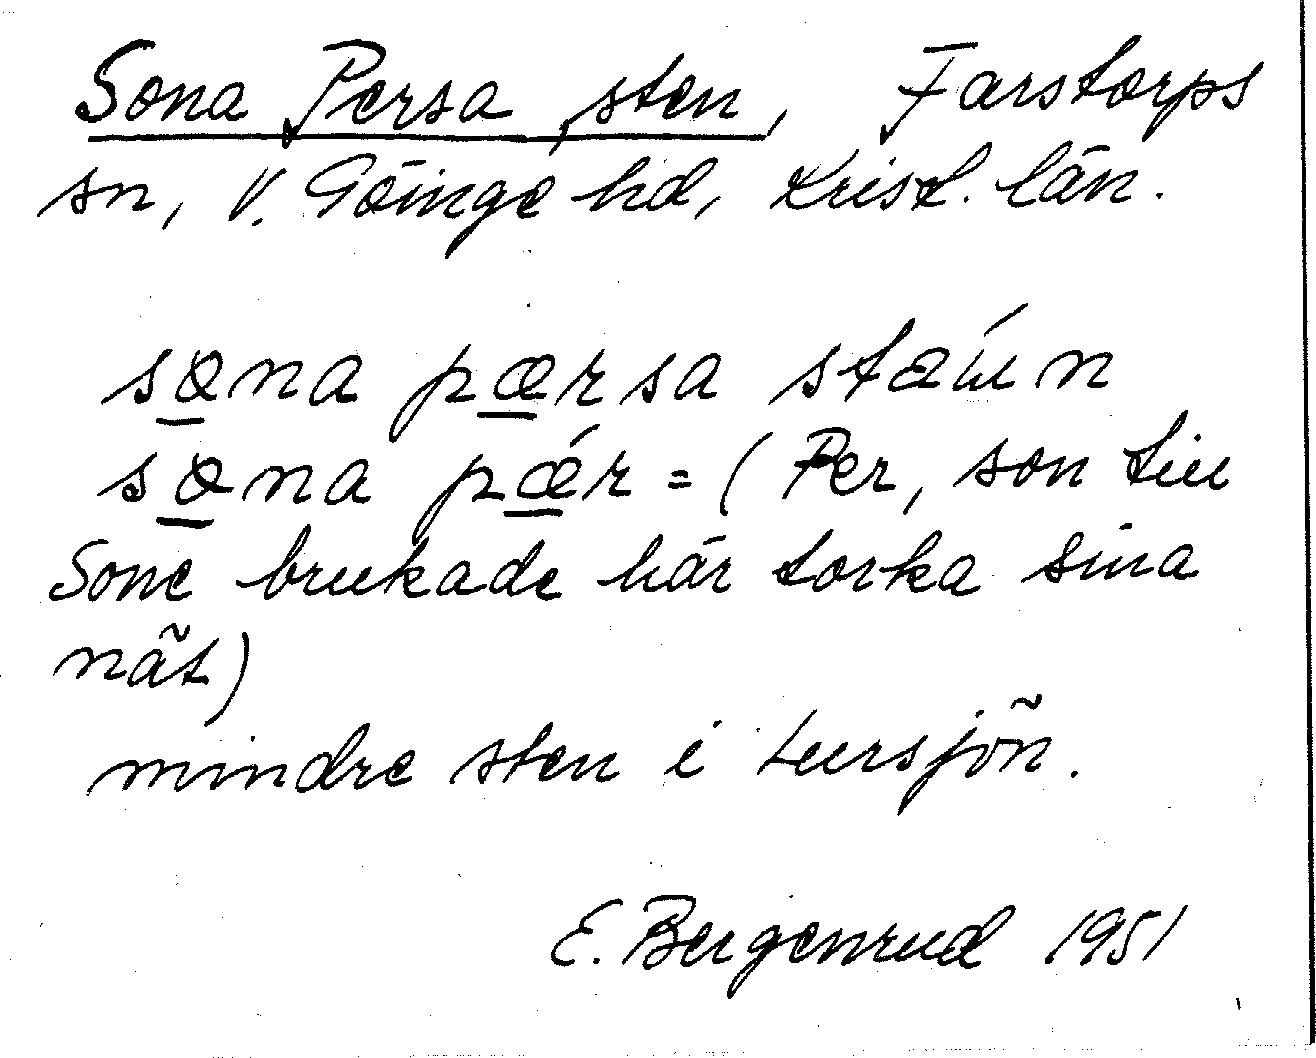 Sona Persa sten, Farstorps
sn, V. Göinge hd, Krist. län.
søna pærsa stæin
søna pǽr = (Per, son till
Sone brukade här torka sina
nät)
mindre sten i Lursjön.
E. Bergenrud 1951